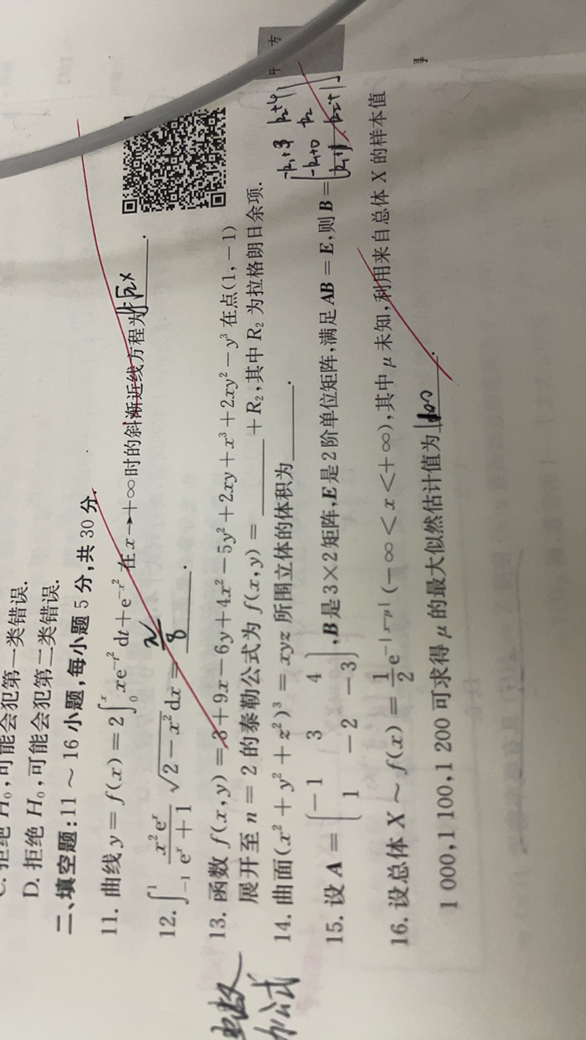 C. 拒绝 H₀,可能会犯第一类错误.
D. 拒绝 H₀,可能会犯第二类错误.
二、填空题:11～16 小题,每小题 5 分,共 30 分.
11. 曲线 y = f(x) = 2∫₀ˣ xe^{-t²} dt + e^{-x²} 在 x→+∞ 时的斜渐近线方程为 y=√πx .
12. ∫₋₁¹ x²eˣ/(eˣ+1) √(2-x²) dx = π/8 .
13. 函数 f(x,y) = 3+9x-6y+4x²-5y²+2xy+x³+2xy²-y³ 在点(1,-1)
展开至 n = 2 的泰勒公式为 f(x,y) = ______ + R₂,其中 R₂ 为拉格朗日余项.
14. 曲面(x²+y²+z²)³ = xyz 所围立体的体积为______.
15. 设 A = [-1 3 4; 1 -2 -3], B 是 3×2 矩阵, E 是 2 阶单位矩阵,满足 AB = E,则 B =
16. 设总体 X ～ f(x) = 1/2 e^{-|x-μ|} (-∞ < x < +∞),其中 μ 未知,利用来自总体 X 的样本值
1 000,1 100,1 200 可求得 μ 的最大似然估计值为 1100 .
公式